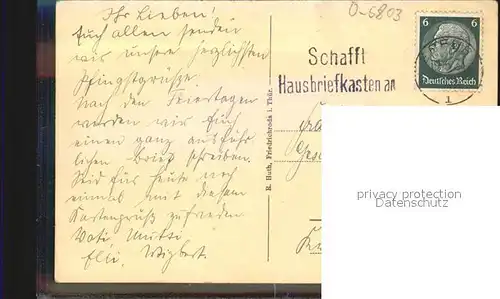 Ihr Lieben!
Euch allen senden
wir unsere herzlichsten
Pfingstgrüsse.
Nach den Feiertagen
werden wir Euch
einen ganz ausführ
lichen Brief schreiben.
Seid für heute noch
einmal mit diesem
Kartengruß zufrieden
Vati, Mutti
Elli, Wigbert.
R. Huth, Friedrichroda i. Thür.
O-6803
Schafft
Hausbriefkasten an
6 6
Deutsches Reich
1
privacy protection
Datenschutz